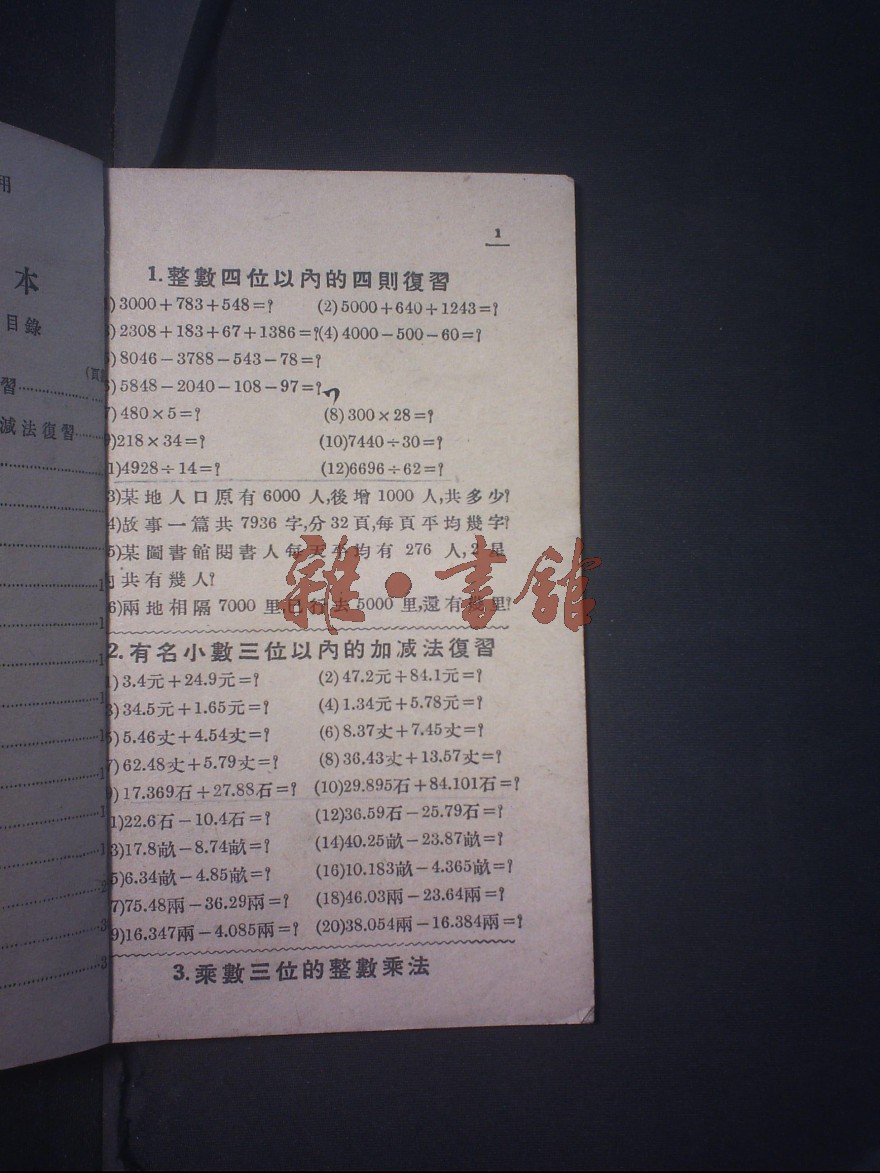 用
本
目錄
(頁
習
減法復習
1
1.整數四位以內的四則復習
)3000+783+548=?  (2)5000+640+1243=?
)2308+183+67+1386=?(4)4000-500-60=?
)8046-3788-543-78=?
)5848-2040-108-97=?
7)480×5=?  (8)300×28=?
)218×34=?  (10)7440÷30=?
1)4928÷14=?  (12)6696÷62=?
3)某地人口原有6000人,後增1000人,共多少?
4)故事一篇共7936字,分32頁,每頁平均幾字?
5)某圖書館閱書人每天平均有276人,2星
共有幾人?
6)兩地相隔7000里,已行去5000里,還有幾里?
雜·書館
2.有名小數三位以內的加減法復習
1)3.4元+24.9元=?  (2)47.2元+84.1元=?
3)34.5元+1.65元=?  (4)1.34元+5.78元=?
5)5.46丈+4.54丈=?  (6)8.37丈+7.45丈=?
7)62.48丈+5.79丈=?  (8)36.43丈+13.57丈=?
9)17.369石+27.88石=?  (10)29.895石+84.101石=?
1)22.6石-10.4石=?  (12)36.59石-25.79石=?
3)17.8畝-8.74畝=?  (14)40.25畝-23.87畝=?
5)6.34畝-4.85畝=?  (16)10.183畝-4.365畝=?
7)75.48兩-36.29兩=?  (18)46.03兩-23.64兩=?
9)16.347兩-4.085兩=?  (20)38.054兩-16.384兩=?
3.乘數三位的整數乘法